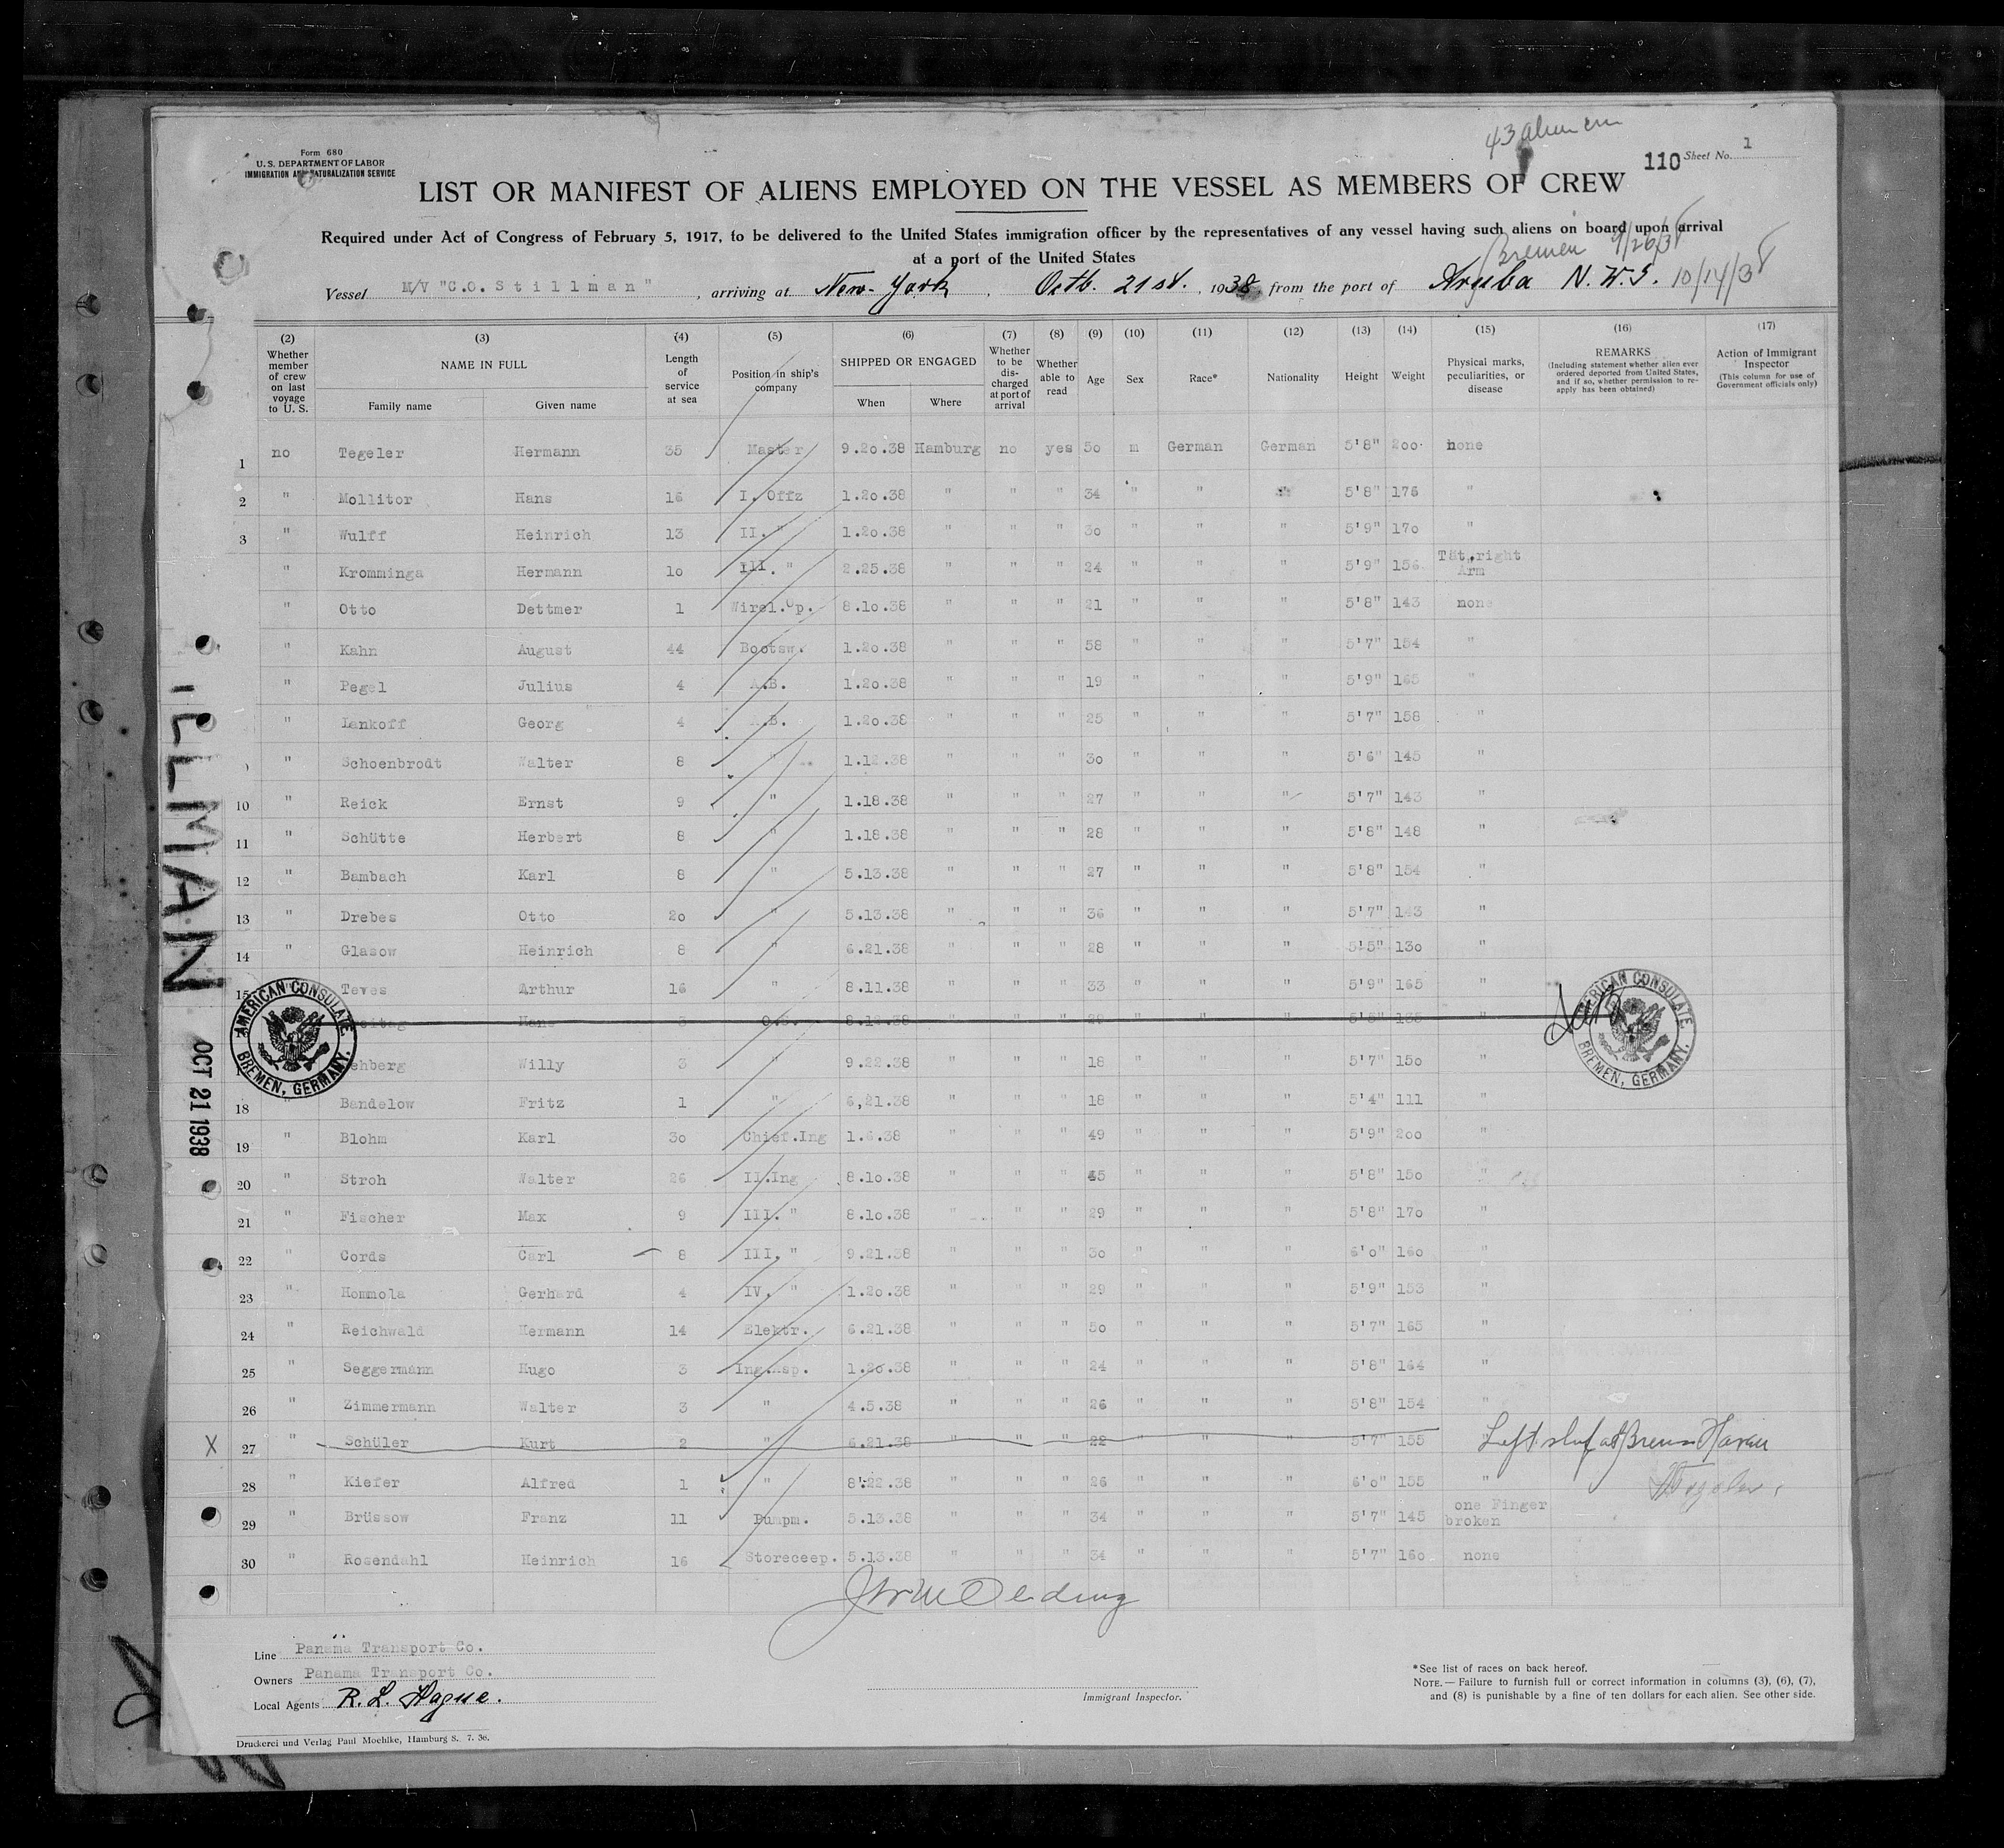 43 alien
Form 680
U. S. DEPARTMENT OF LABOR
IMMIGRATION AND NATURALIZATION SERVICE
110 Sheet No. 1
LIST OR MANIFEST OF ALIENS EMPLOYED ON THE VESSEL AS MEMBERS OF CREW
Required under Act of Congress of February 5, 1917, to be delivered to the United States immigration officer by the representatives of any vessel having such aliens on board upon arrival
at a port of the United States
Bremen 9/26/38
Vessel M/V "C.O. Stillman", arriving at New-York, Octb. 21st., 1938, from the port of Aruba N.W.I. 10/14/38
(2) (3) (4) (5) (6) (7) (8) (9) (10) (11) (12) (13) (14) (15) (16) (17)
Whether member of crew on last voyage to U. S. | NAME IN FULL | Family name | Given name | Length of service at sea | Position in ship's company | SHIPPED OR ENGAGED | When | Where | Whether to be discharged at port of arrival | Whether able to read | Age | Sex | Race* | Nationality | Height | Weight | Physical marks, peculiarities, or disease | REMARKS (Including statement whether alien ever ordered deported from United States, and if so, whether permission to reapply has been obtained) | Action of Immigrant Inspector (This column for use of Government officials only)
1 no Tegeler Hermann 35 Master 9.20.38 Hamburg no yes 50 m German German 5'8" 200 none
2 " Mollitor Hans 16 I. Offz 1.20.38 " " " 34 " " " 5'8" 176 "
3 " Wulff Heinrich 13 II. " 1.20.38 " " " 30 " " " 5'9" 170 "
" Kromminga Hermann 10 III. " 2.25.38 " " " 24 " " " 5'9" 156 Tät.right Arm
" Otto Dettmer 1 Wirel.Op. 8.10.38 " " " 21 " " " 5'8" 143 none
" Kahn August 44 Bootsw. 1.20.38 " " " 58 " " " 5'7" 154 "
" Pegel Julius 4 A.B. 1.20.38 " " " 19 " " " 5'9" 165 "
" Lankoff Georg 4 A.B. 1.20.38 " " " 25 " " " 5'7" 158 "
" Schoenbrodt Walter 8 " 1.12.38 " " " 30 " " " 5'6" 145 "
10 " Reick Ernst 9 " 1.18.38 " " " 27 " " " 5'7" 143 "
11 " Schütte Herbert 8 " 1.18.38 " " " 28 " " " 5'8" 148 "
12 " Bambach Karl 8 " 5.13.38 " " " 27 " " " 5'8" 154 "
13 " Drebes Otto 20 " 5.13.38 " " " 36 " " " 5'7" 143 "
14 " Glasow Heinrich 8 " 6.21.38 " " " 28 " " " 5'5" 130 "
15 " Teves Arthur 16 " 8.11.38 " " " 33 " " " 5'9" 165 "
Hans 3 O.S. 8.12.38 " " "
Willy 3 " 9.22.38 " " " 18 " " " 5'7" 150 "
18 " Bandelow Fritz 1 " 6,21.38 " " " 18 " " " 5'4" 111 "
19 " Blohm Karl 30 Chief.Ing 1.6.38 " " " 49 " " " 5'9" 200 "
20 " Stroh Walter 26 II.Ing 8.10.38 " " " 45 " " " 5'8" 150 "
21 " Fischer Max 9 III. " 8.10.38 " " " 29 " " " 5'8" 170 "
22 " Cords Carl 8 III. " 9.21.38 " " " 30 " " " 6'0" 160 "
23 " Hommola Gerhard 4 IV. " 1.20.38 " " " 29 " " " 5'9" 153 "
24 " Reichwald Hermann 14 Elektr. 6.21.38 " " " 50 " " " 5'7" 165 "
25 " Seggermann Hugo 3 Ing.Asp. 1.20.38 " " " 24 " " " 5'8" 164 "
26 " Zimmermann Walter 3 " 4.5.38 " " " 26 " " " 5'8" 154 "
X 27 " Schüler Kurt 2 " 6.21.38 " " " 22 " " " 5'7" 155 " Left ship at Bremer Haven
28 " Kiefer Alfred 1 " 8.22.38 " " " 26 " " " 6'0" 155 " Tegeler
29 " Brüssow Franz 11 Pumpm. 5.13.38 " " " 34 " " " 5'7" 145 one Finger broken
30 " Rosendahl Heinrich 16 Storeceep. 5.13.38 " " " 34 " " " 5'7" 160 none
AMERICAN CONSULATE. BREMEN, GERMANY.
AMERICAN CONSULATE. BREMEN, GERMANY.
ILLMAN
OCT 21 1938
Line Panama Transport Co.
Owners Panama Transport Co.
Local Agents R. L. Hague.
Immigrant Inspector.
*See list of races on back hereof.
NOTE.— Failure to furnish full or correct information in columns (3), (6), (7),
and (8) is punishable by a fine of ten dollars for each alien. See other side.
Druckerei und Verlag Paul Moehlke, Hamburg 8. 7. 36.